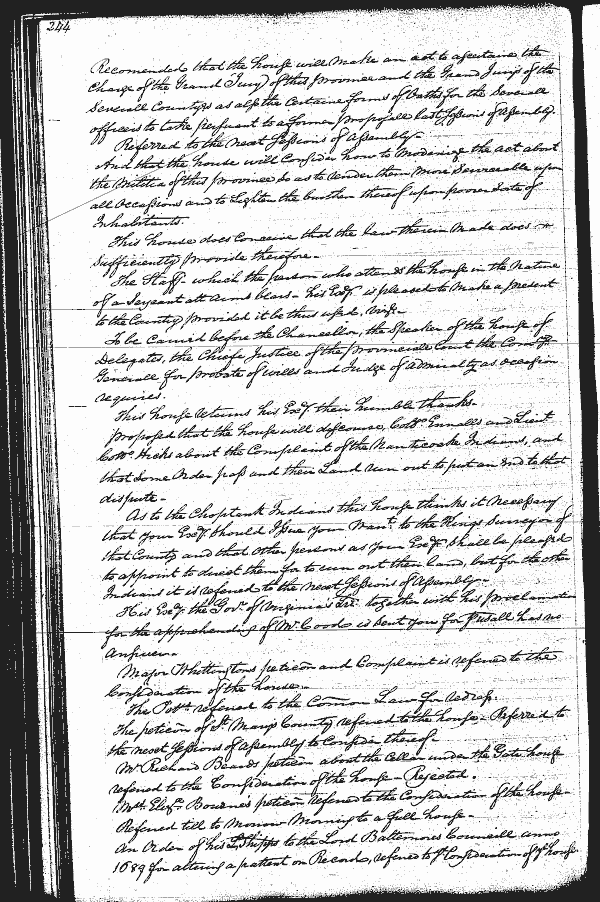 244
Recomended that the house will make an act to ascertaine the
Charge of the Grand Jury of this province and the Grand Jurys of the
Severall Countys as also certaine forms of Oaths for the Severall
officers to take persuant to a former proposall last Sessions of Assembly.
Referred to the next Sessions of Assembly.
And that the house will Consider how to modenize the act about
the Militia of this province so as to render them more Serviceable upon
all occassions and to Lighten the burthen thereof upon poorer Sorte of
Inhabitants.
This house does Conceive that the Law therein made does
Sufficiently provide therefore.
The Staff which the person who attends the house in the Nature
of a Serjeant att Arms bears his Exc.y is pleased to make a present
to the County provided it be thus used, viz.t
To be Carried before the Chancellor, the Speaker of the house of
Delegates, the Chiefe Justice of the provinciale Court the Com.ry
Generall for probate of wills and Judge of Admiralty as occasion
requires.
This house returns his Exc.y their humble thanks.
proposed that the house will discourse, Coll.o Ennalls and Lieut
Coll.o Hicks about the Complaint of the Nanticoake Indians, and
that some Order pass and their Land run out to put an End to that
dispute.
As to the Choptank Indians this house thinks it necessary
that your Exc.y should Issue your Warr.t to the Kings Surveyor of
that County and that other persons as your Exc.y shall be pleased
to appoint to direct them for to run out their land, but for the other
Indians it is refered to the next Sessions of Assembly.
His Exc.y the Gov.r of Virginia's together with his proclamation
for the apprehending of Mr. Coode is sent you for perusall has no
Answer.
Major Whittingtons peticon and Complaint is referred to the
Consideration of the house.
The Pet.r referred to the Comon Law for redress.
The peticon of St. Marys County referred to the house. Referred to
the next Sessions of Assembly to Consider thereof.
Mr. Richard Beards peticon about the Cellar under the Gate house
referred to the Consideration of the house. Rejected.
Mrs. Eliz.a Bournes peticon referred to the Consideration of the house.
Referred till to Morrow Morning to a full house.
An Order of his Lordships to the Lord Baltemores Councill anno
1689 for altering a patent on Record, refered to ye Consideration of ye house